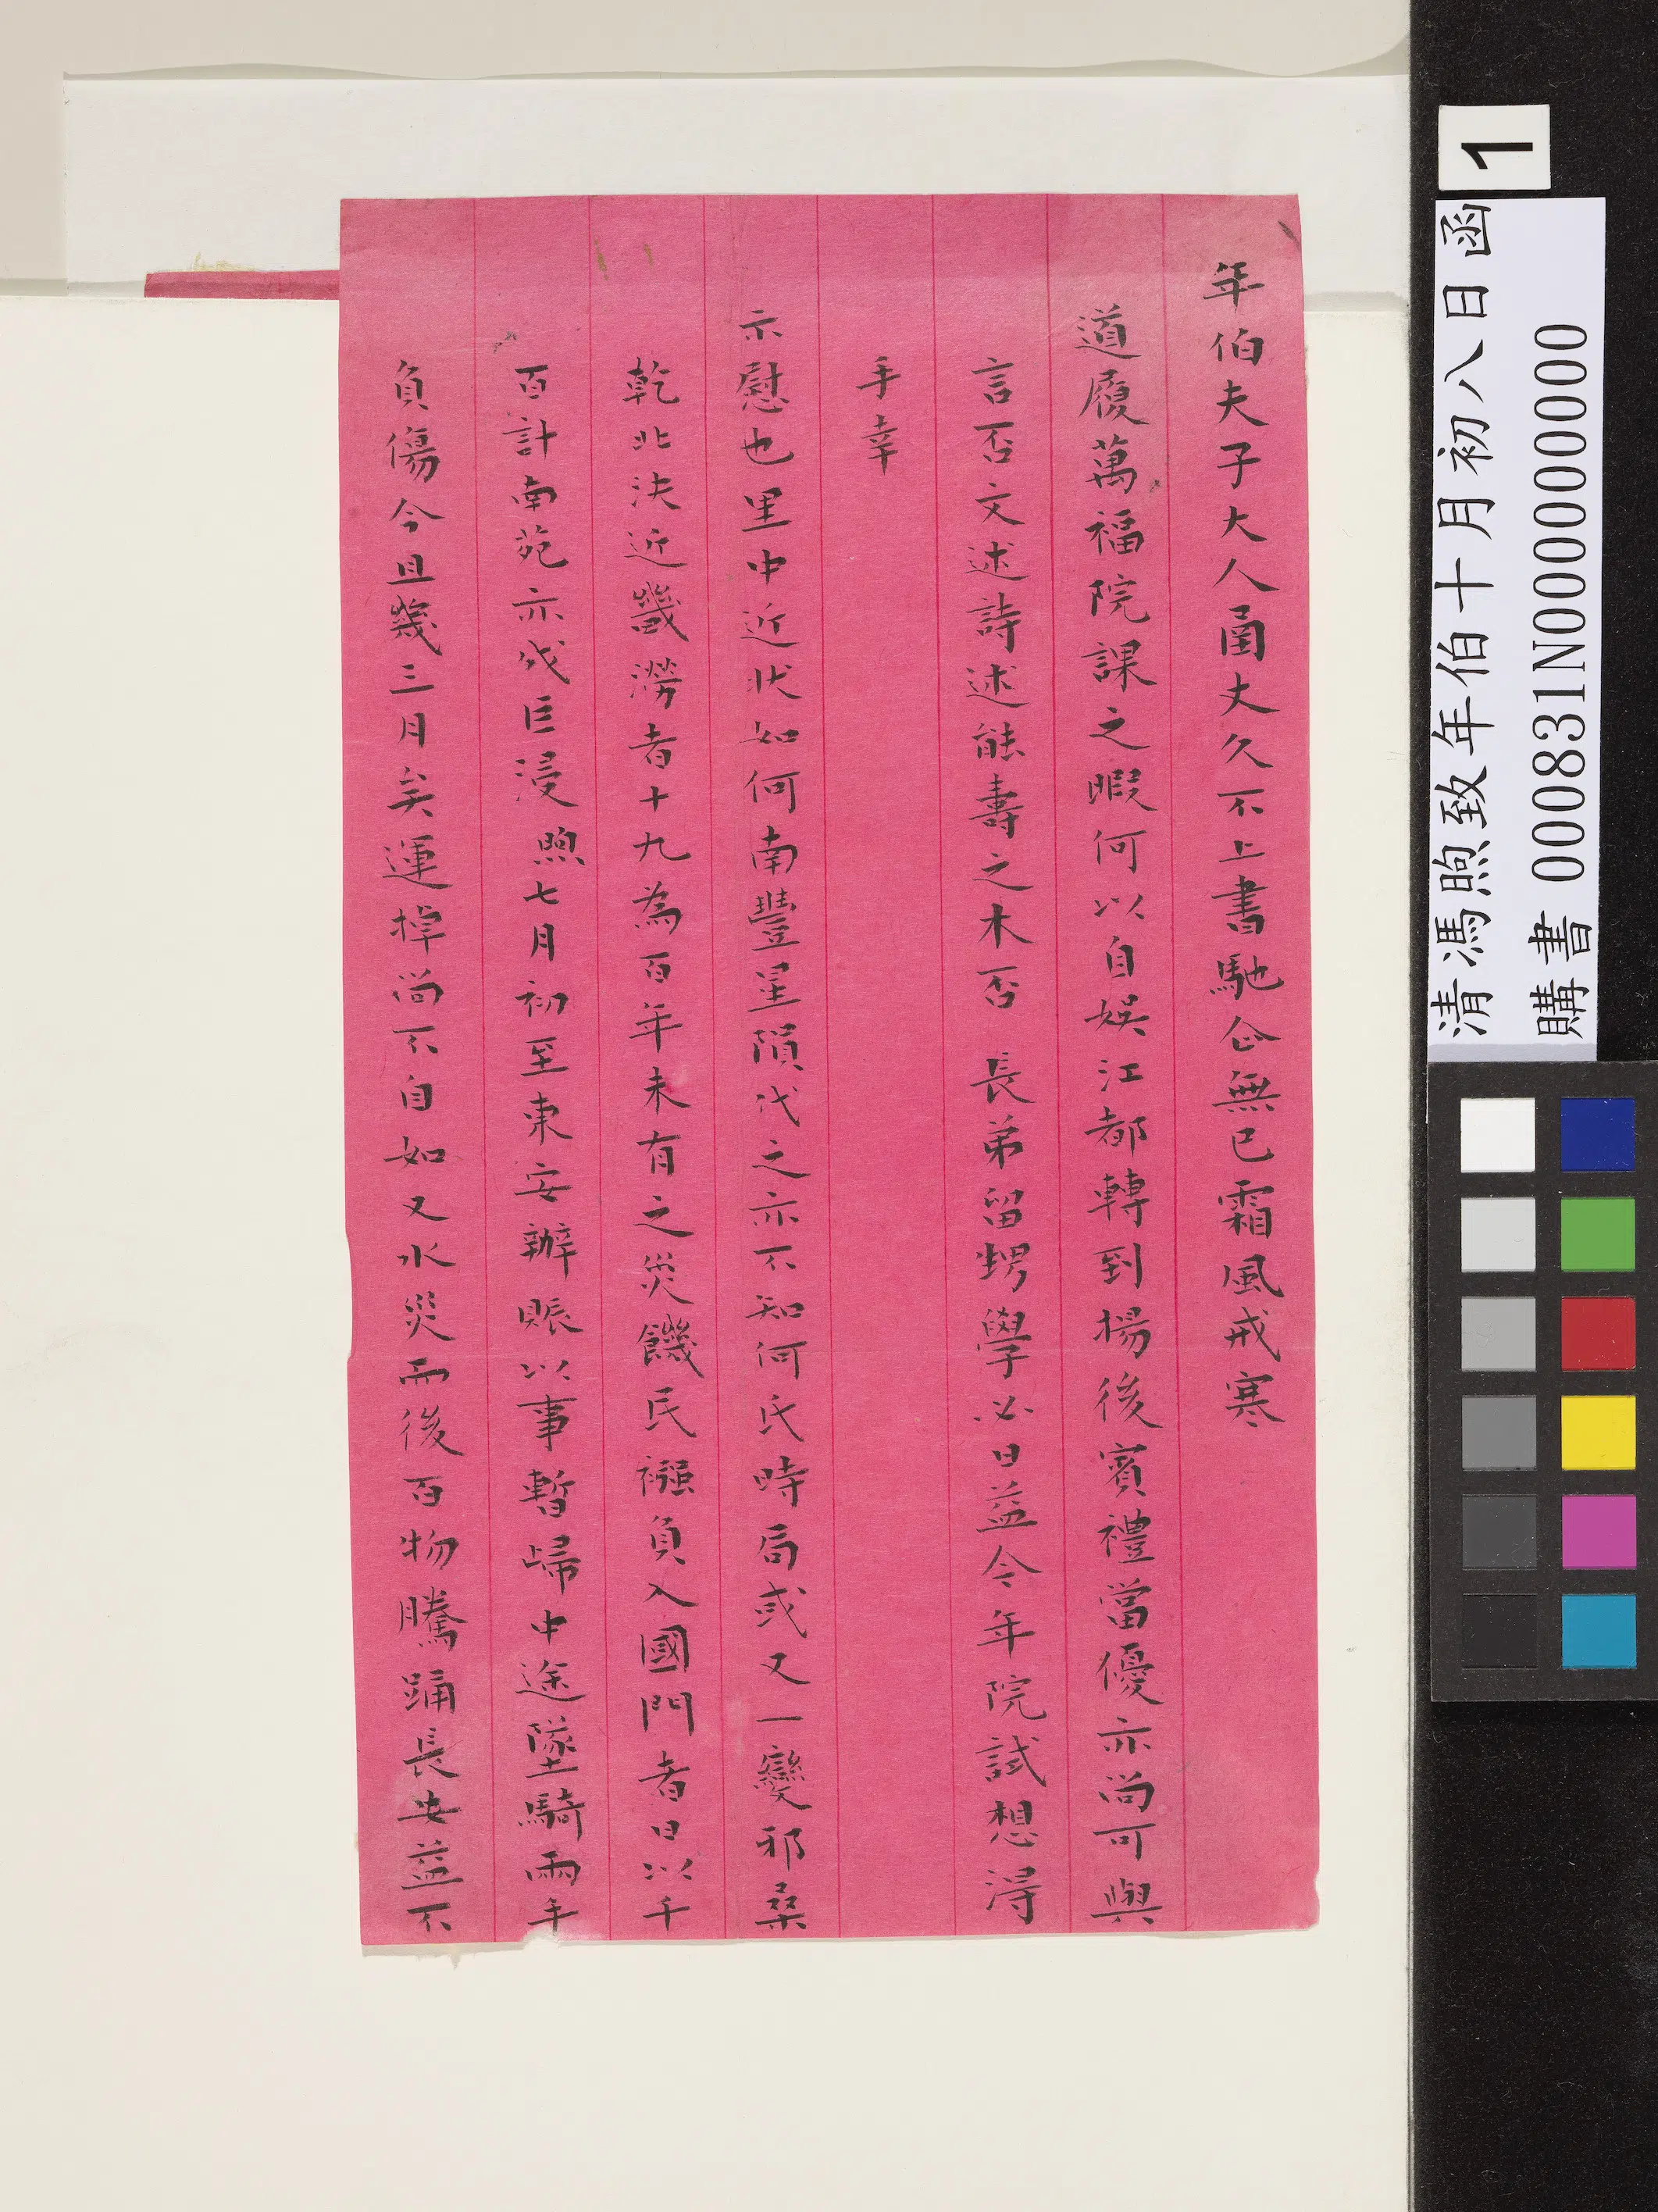 年伯夫子大人函丈久不上書馳企無已霜風戒寒
道履萬福院課之暇何以自娛江都轉到揚後賓禮當優亦尚可與
言否文述詩述能壽之木否 長弟留甥學必日益今年院試想得
手幸
示慰也里中近狀如何南豐星隕代之亦不知何氏時局或又一變邪桑
乾北決近畿澇者十九為百年未有之災饑民襁負入國門者日以千
百計南苑亦成巨浸煦七月初至東安辦賑以事暫歸中途墜騎兩手
負傷今且幾三月矣運掉尚不自如又水災而後百物騰踊長安益不
1
清馮煦致年伯十月初八日函
購書 000831N000000000